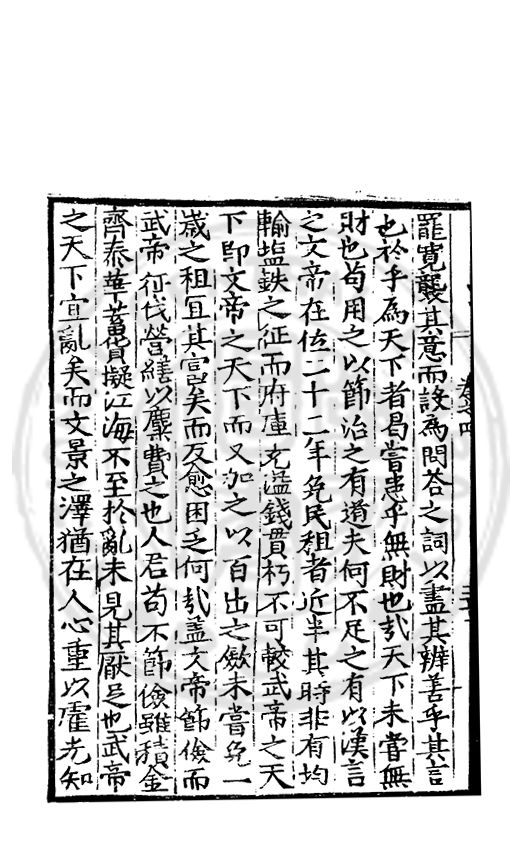 罷寬襲其意而設為問答之詞以盡其辨善乎其言
也於乎為天下者曷嘗患乎無財也㢤天下未嘗無
財也苟用之以節治之有道夫何不足之有以漢言
之文帝在位二十二年免民租者近半其時非有均
輸塩鉄之征而府庫充溢錢貫朽不可較武帝之天
下即文帝之天下而又加之以百出之斂未嘗免一
歳之租宜其富矣而反愈困乏何㢤蓋文帝節儉而
武帝征伐營繕以糜費之也人君苟不節儉雖積金
齊泰華蓄貨擬江海不至扵亂未見其厭足也武帝
之天下宜亂矣而文景之澤猶在人心重以霍光知